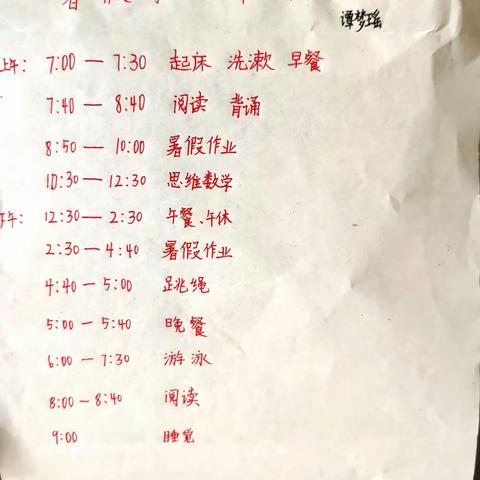 谭梦瑶
上午: 7:00 — 7:30 起床 洗漱 早餐
7:40 — 8:40 阅读 背诵
8:50 — 10:00 暑假作业
10:30 — 12:30 思维数学
下午: 12:30 — 2:30 午餐、午休
2:30 — 4:40 暑假作业
4:40 — 5:00 跳绳
5:00 — 5:40 晚餐
6:00 — 7:30 游泳
8:00 — 8:40 阅读
9:00 睡觉